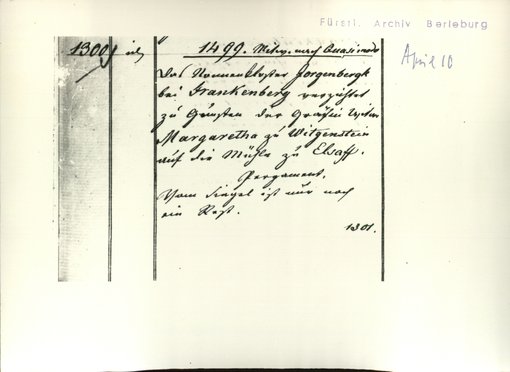 Fürstl. Archiv Berleburg
April 10
1300
1499. Mittw. nach Quasimodo
Das Nonnenkloster Jorgenbergk
bei Frankenberg verzichtet
zu Gunsten der Gräfin Wittwe
Margaretha zu Witgenstein
auf die Mühle zu Elsaff.
Pergament.
Vom Siegel ist nur noch
ein Rest.
1301.